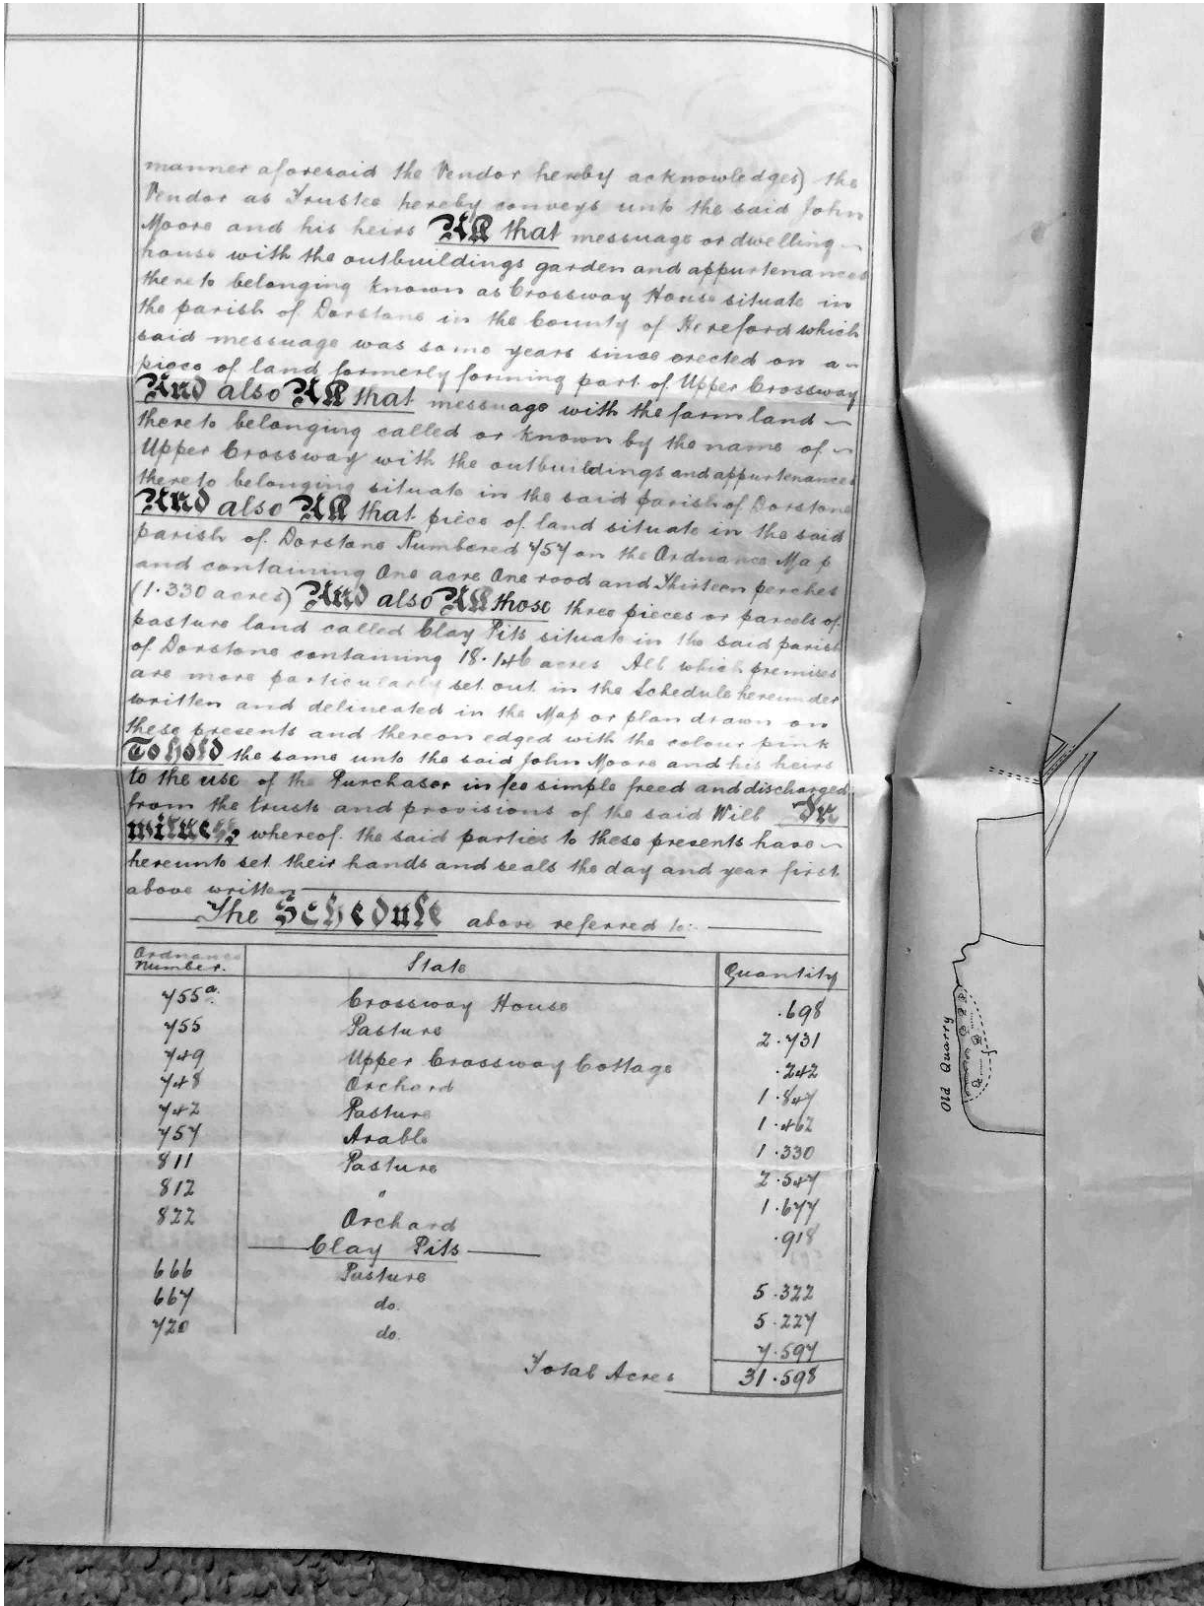 manner aforesaid the Vendor hereby acknowledges) the
Vendor as Trustee hereby conveys unto the said John
Moore and his heirs All that messuage or dwelling
house with the outbuildings garden and appurtenances
thereto belonging known as Crossway House situate in
the parish of Dorstone in the County of Hereford which
said messuage was some years since erected on a
piece of land formerly forming part of Upper Crossway
And also All that messuage with the farm land
thereto belonging called or known by the name of
Upper Crossway with the outbuildings and appurtenances
thereto belonging situate in the said parish of Dorstone
And also All that piece of land situate in the said
parish of Dorstone Numbered 757 on the Ordnance Map
and containing One acre One rood and Thirteen perches
(1.330 acres) And also All those three pieces or parcels of
pasture land called Clay Pits situate in the said parish
of Dorstone containing 18.146 acres All which premises
are more particularly set out in the Schedule hereunder
written and delineated in the Map or plan drawn on
these presents and thereon edged with the colour pink
To hold the same unto the said John Moore and his heirs
to the use of the Purchaser in fee simple freed and discharged
from the trusts and provisions of the said Will In
witness whereof the said parties to these presents have
hereunto set their hands and seals the day and year first
above written
The Schedule above referred to:-
Ordnance Number. State Quantity
755a. Crossway House .698
755 Pasture 2.731
749 Upper Crossway Cottage .242
748 Orchard 1.847
742 Pasture 1.462
757 Arable 1.330
811 Pasture 2.547
812 " 1.677
822 Orchard .918
Clay Pits
666 Pasture 5.322
667 do. 5.227
720 do. 7.597
Total Acres 31.598
Old Quarry